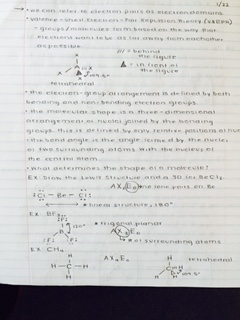 1/22
→ • we can refer to electron pairs as electron domains.
• valence-shell electron-pair repulsion theory (VSEPR)
- groups/molecules form based on the way that
electrons want to be as far away from eachother
as possible.
/// = behind
the figure
▲ = in front of
the figure
109.5°
tetrahedral
• the electron-group arrangement is defined by both
bonding and non-bonding electron groups.
• the molecular shape is a three-dimensional
arrangement of nuclei joined by the bonding
groups. this is defined by only relative positions of nuclei
• the bond angle is the angle formed by the nuclei
of two surrounding atoms with the nucleus of
the central atom.
• what determines the shape of a molecule?
Ex. Show the Lewis structure and 3D for BeCl₂.
AX₂E₀ lone pairs on Be
:Cl - Be - Cl:
* linear structure, 180°
Ex. BF₃
120° * trigonal planar
AX₃E₀
# of surrounding atoms
Ex. CH₄
H
AX₄E₀ tetrahedral
H - C - H
H
109.5°